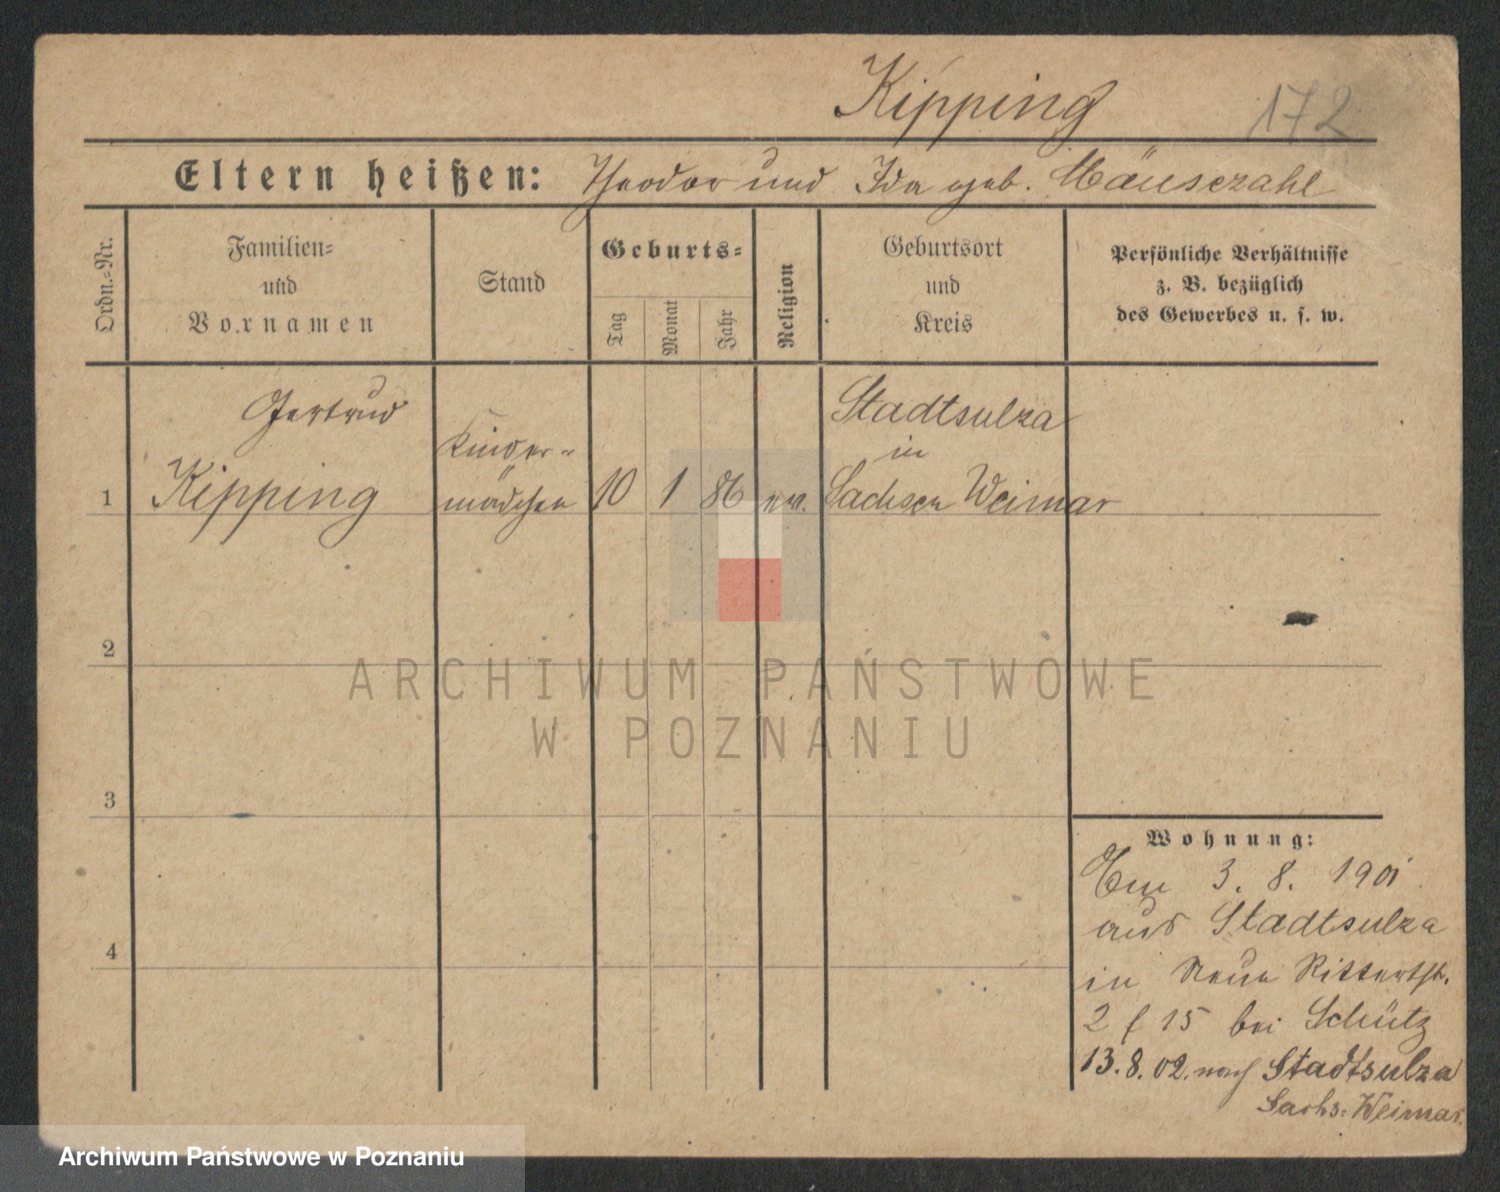 Kipping 172
Eltern heißen: Theodor und Ida geb. Mäusezahl
Ordn.=Nr.
Familien=
und
Vornamen
Stand
Geburts=
Tag
Monat
Jahr
Religion
Geburtsort
und
Kreis
Persönliche Verhältnisse
z. B. bezüglich
des Gewerbes u. s. w.
Gertrud
1 Kipping
Kinder=
mädchen
10 1 86 ev.
Stadtsulza
in
Sachsen Weimar
2
3
4
Wohnung:
3. 8. 1901
aus Stadtsulza
in Neue Ritterstr.
2 f 15 bei Schütz
13.8.02. nach Stadtsulza
Sachs. Weimar.
ARCHIWUM PAŃSTWOWE
W POZNANIU
Archiwum Państwowe w Poznaniu